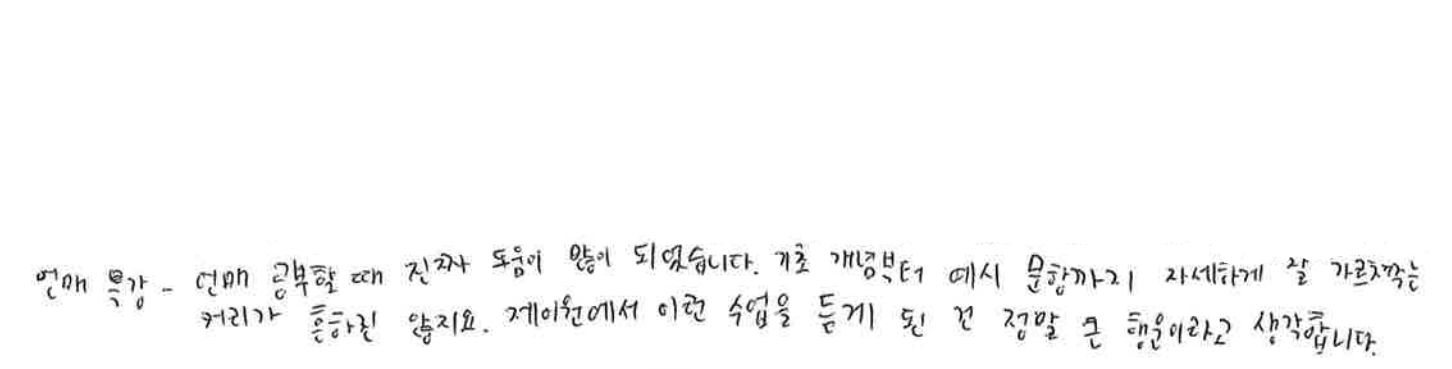 언매 특강 - 언매 공부할 때 진짜 도움이 많이 되었습니다. 기초 개념부터 예시 문항까지 자세하게 잘 가르쳐주는
커리가 흔하진 않지요. 제이원에서 이런 수업을 듣게 된 건 정말 큰 행운이라고 생각합니다.